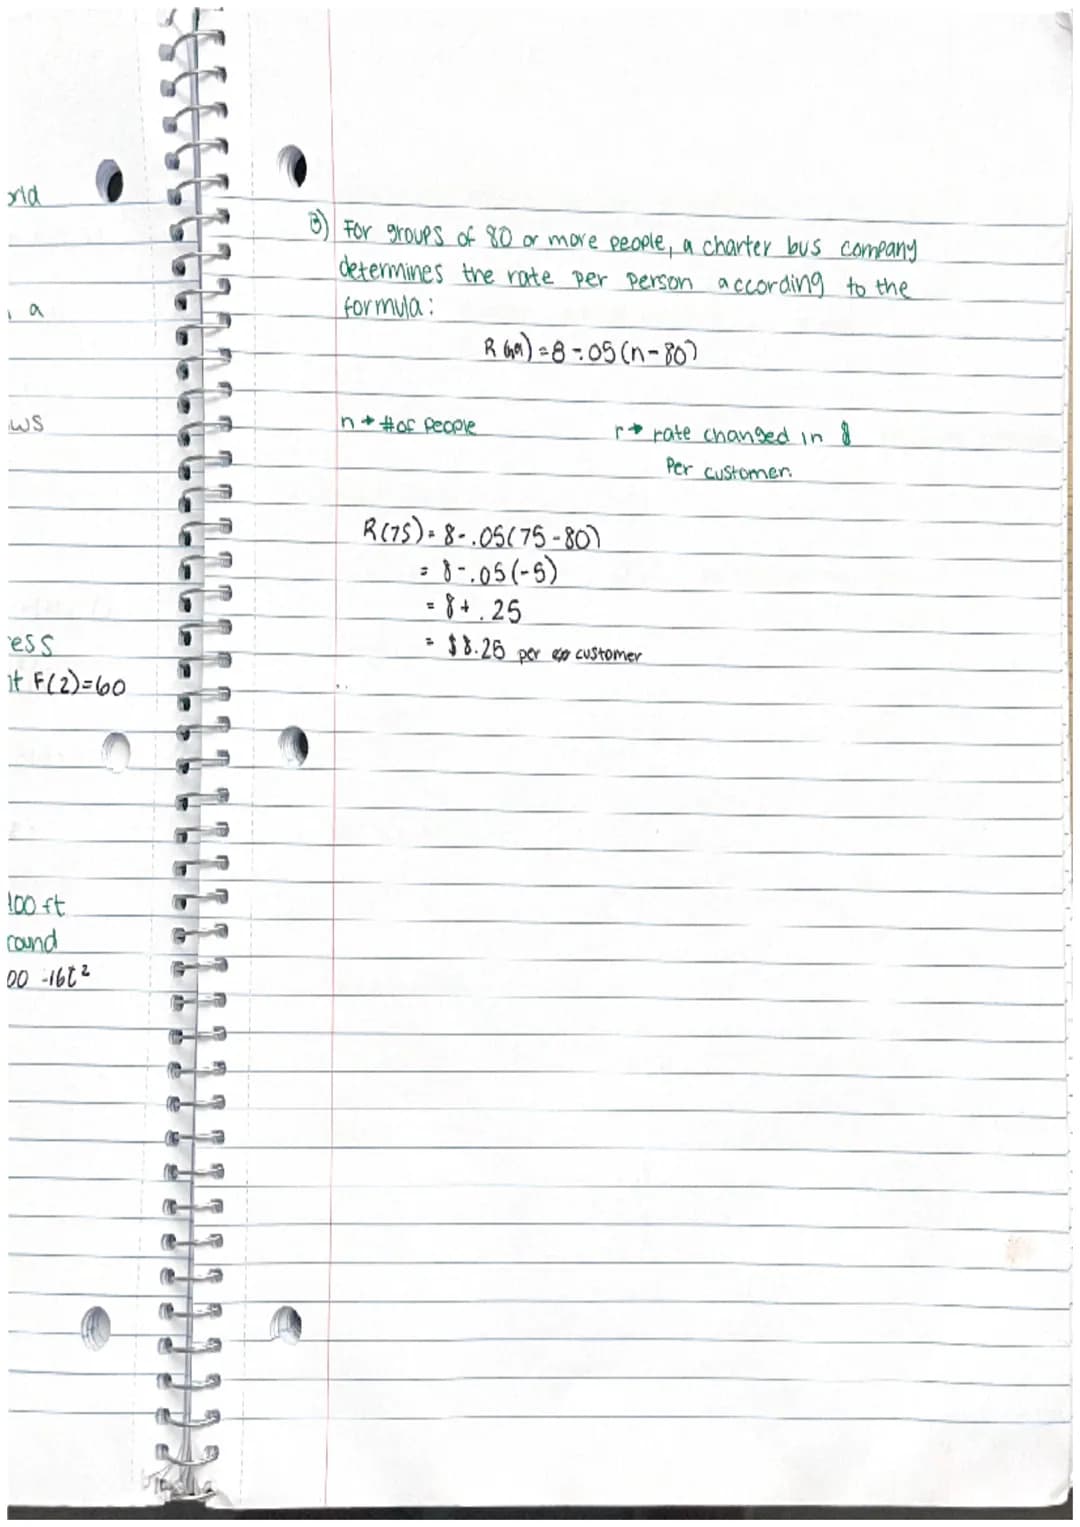 orld
a
ws
ess
it F(2)=60
100 ft
round
00 -16t²
3) For groups of 80 or more people, a charter bus company
determines the rate per person according to the
formula:
R =8-.05(n-80)
n → #of people
r→ rate changed in $
Per customer.
R(75)= 8-.05(75-80)
= 8-.05(-5)
= 8+.25
= $8.25 per customer